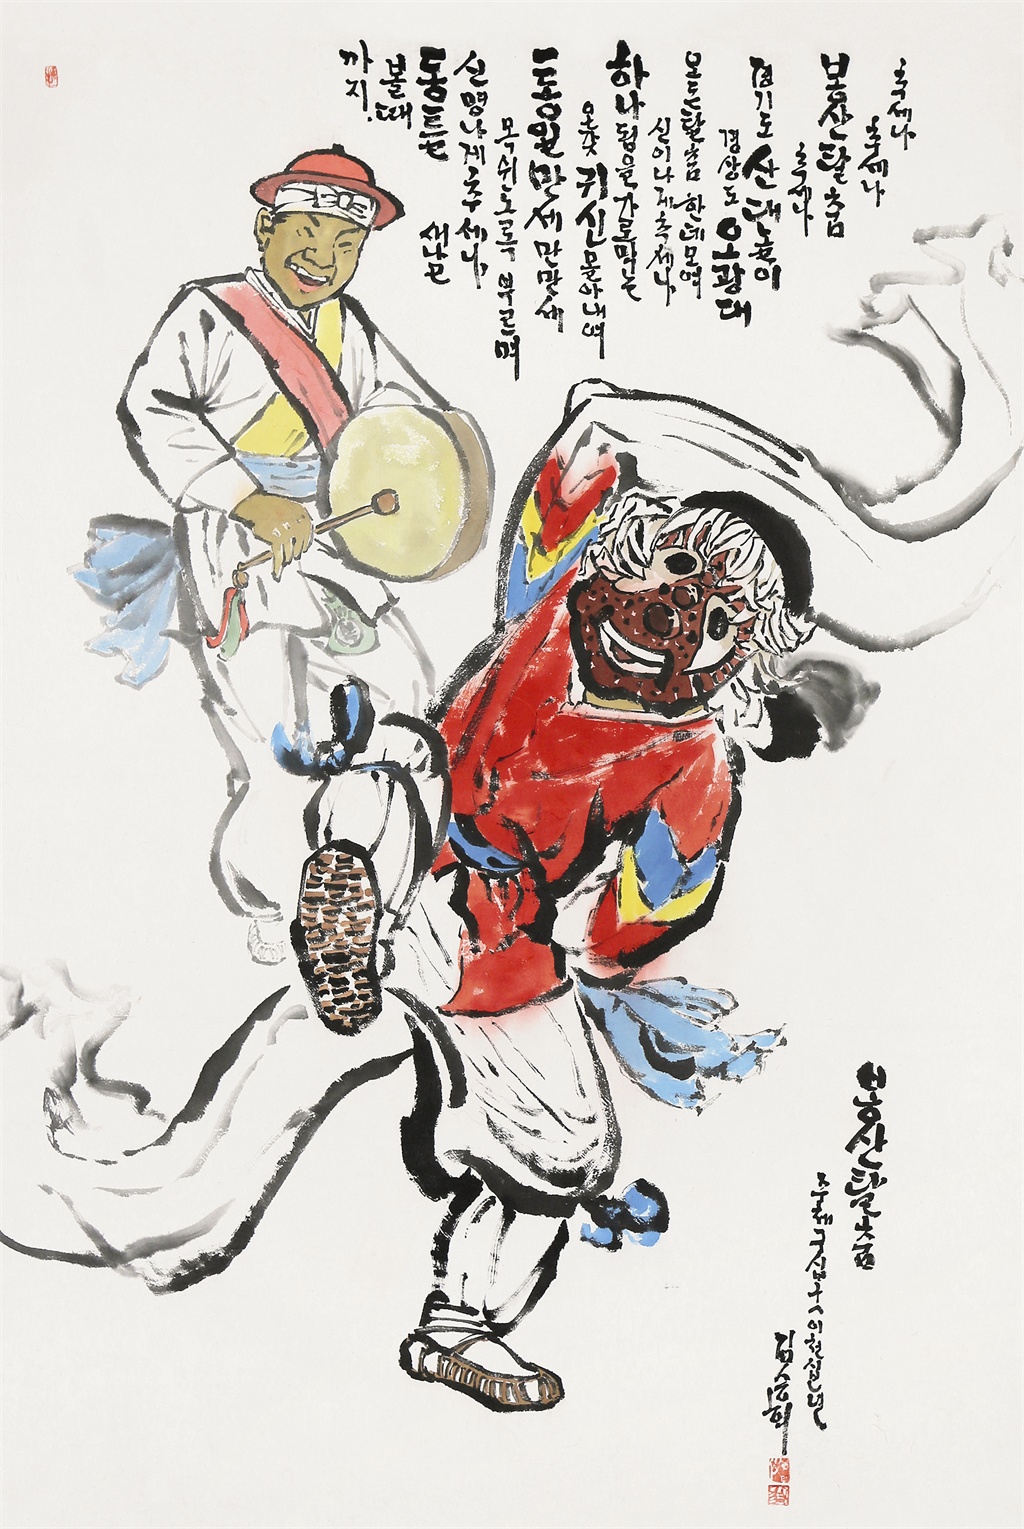 추세나
추세나
봉산탈춤
추세나
경기도 산대놀이
경상도 오광대
모든탈춤 한데모여
신이나게 추세나
하나됨을 가로막는
온갖 귀신 몰아내여
통일만세 만만세
목쉬도록 부르며
신명나게 추세나
동트는 새날
볼때
까지.
봉산탈춤
구십구 이천십년